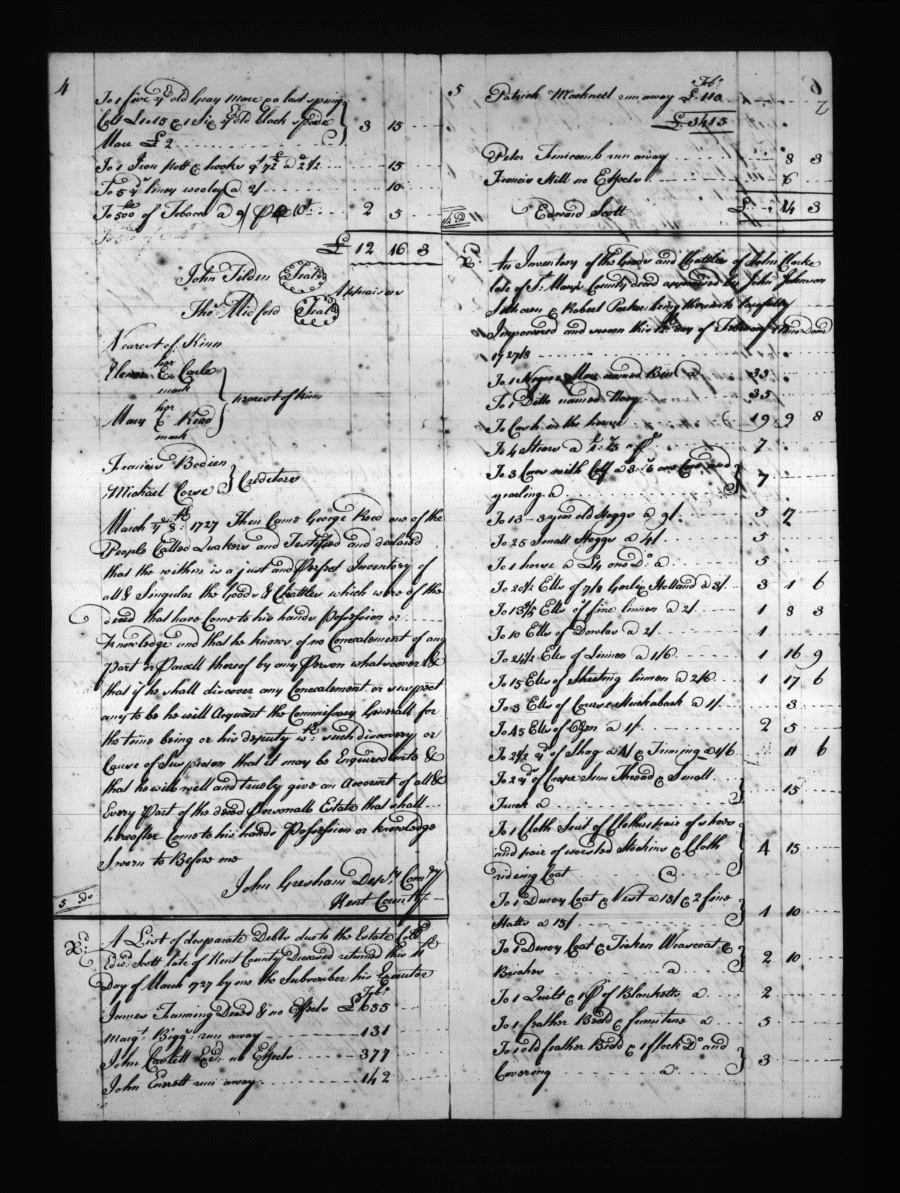 4
To 1 five yr old Gray Mare &
Colt £1..15 & 1 Six yr old black
Mare £2 3 15
To 1 Iron pott & hooks qt a 2½ 15
To 5 yds Linsey wooley a 2/ 10
To 500 of Tobacco a 9/ p Ct 2 5
£ 12 16 3
John Tilden Seal
Appraisers
Seal
Nearest of Kinn
her
E Carle
mark
nearest of kinn
her
Mary Read
mark
Francis Bodien
Michael Corse Creditors
March ye 8th: 1727 Then Came George Reed one of the
People Called Quakers and Testifyed and declared
that the within is a just and Perfect Inventory of
all & Singular the Goods & Chattles which were of the
deced that have Come to his hands Possession or
Knowledge and that he knows of no Concealement of any
Part or Parcell thereof by any Person whatsoever &
that if he shall discover any Concealement or suspect
any to be he will Acquaint the Commissary Generall for
the time being or his deputy wth such discovery or
Cause of Suspicion that it may be Enquired into &
that he will well and truely give an Account of all &
Every Part of the deced Personall Estate that shall
hereafter Come to his hands Possession or Knowledge
Sworn to Before me
John Gresham Depty Comry
Kent County
5 do
A List of desparate Debts due to the Estate
Edwd. Scott late of Kent County Deceased returned this
Day of March 1727 by me the Subscriber his Executor
James Fanning Dead & no Effects 655
Margt. run away 131
John no Effects 377
John Everett run away 142
5
Patrick run away 110
£ 3415
Peter run away 8 3
Francis Hill no Effects 6
Edward Scott £ 14 3
An Inventory of the Goods and Chattles of John Clarke
late of St. Marys County deced appraised by John Johnson
& Robert being thereunto Lawfully
Impowered and sworn this day of February Anno Domi
1727/8
To 1 Negroe Man named Ben a 35
To 1 Ditto named 35
To Cash in the house 19 9 8
To 4 Steers a 7
To 3 Cows with Calf a one Cow and
yearling a 7
To 13 - 3 year old Hoggs a 9/ 5 17
To 25 Small Hoggs a 4/ 5
To 1 horse a £4 one Do. a 5
To 20½ Ells of 7/8 Garlix Holland a 3/ 3 1 6
To Ells of fine linnen a 2/ 1 8 3
To 10 Ells of Dowlas a 2/ 1
To 24½ Ells of Linnen a 1/6 1 16 9
To 15 Ells of Sheeting linnen a 2/6 1 17 6
To 3 Ells of Course Huckaback a 1/ 3
To 45 Ells of a 1/ 2 5
To 2½ yds of Shag a 4/ & a 1/6 11 6
To 2 yds of Crape Thread & Small
a 15
To 1 Cloth Suit of Cloths 1 pair of shoes
and pair of worsted Stockins & Cloth
rideing Coat 4 15
To 1 Duroy Coat & Vest a 15/ & 2 fine
Hatts a 15/ 1 10
To 1 Duroy Coat & Ticken Wascoat &
Breches a 2 10
To 1 Quilt & 1 pr of Blanketts a 2
To 1 feather Bedd & furniture a 5
To 1 old feather Bedd & 1 flock Do. and
Covering a 3